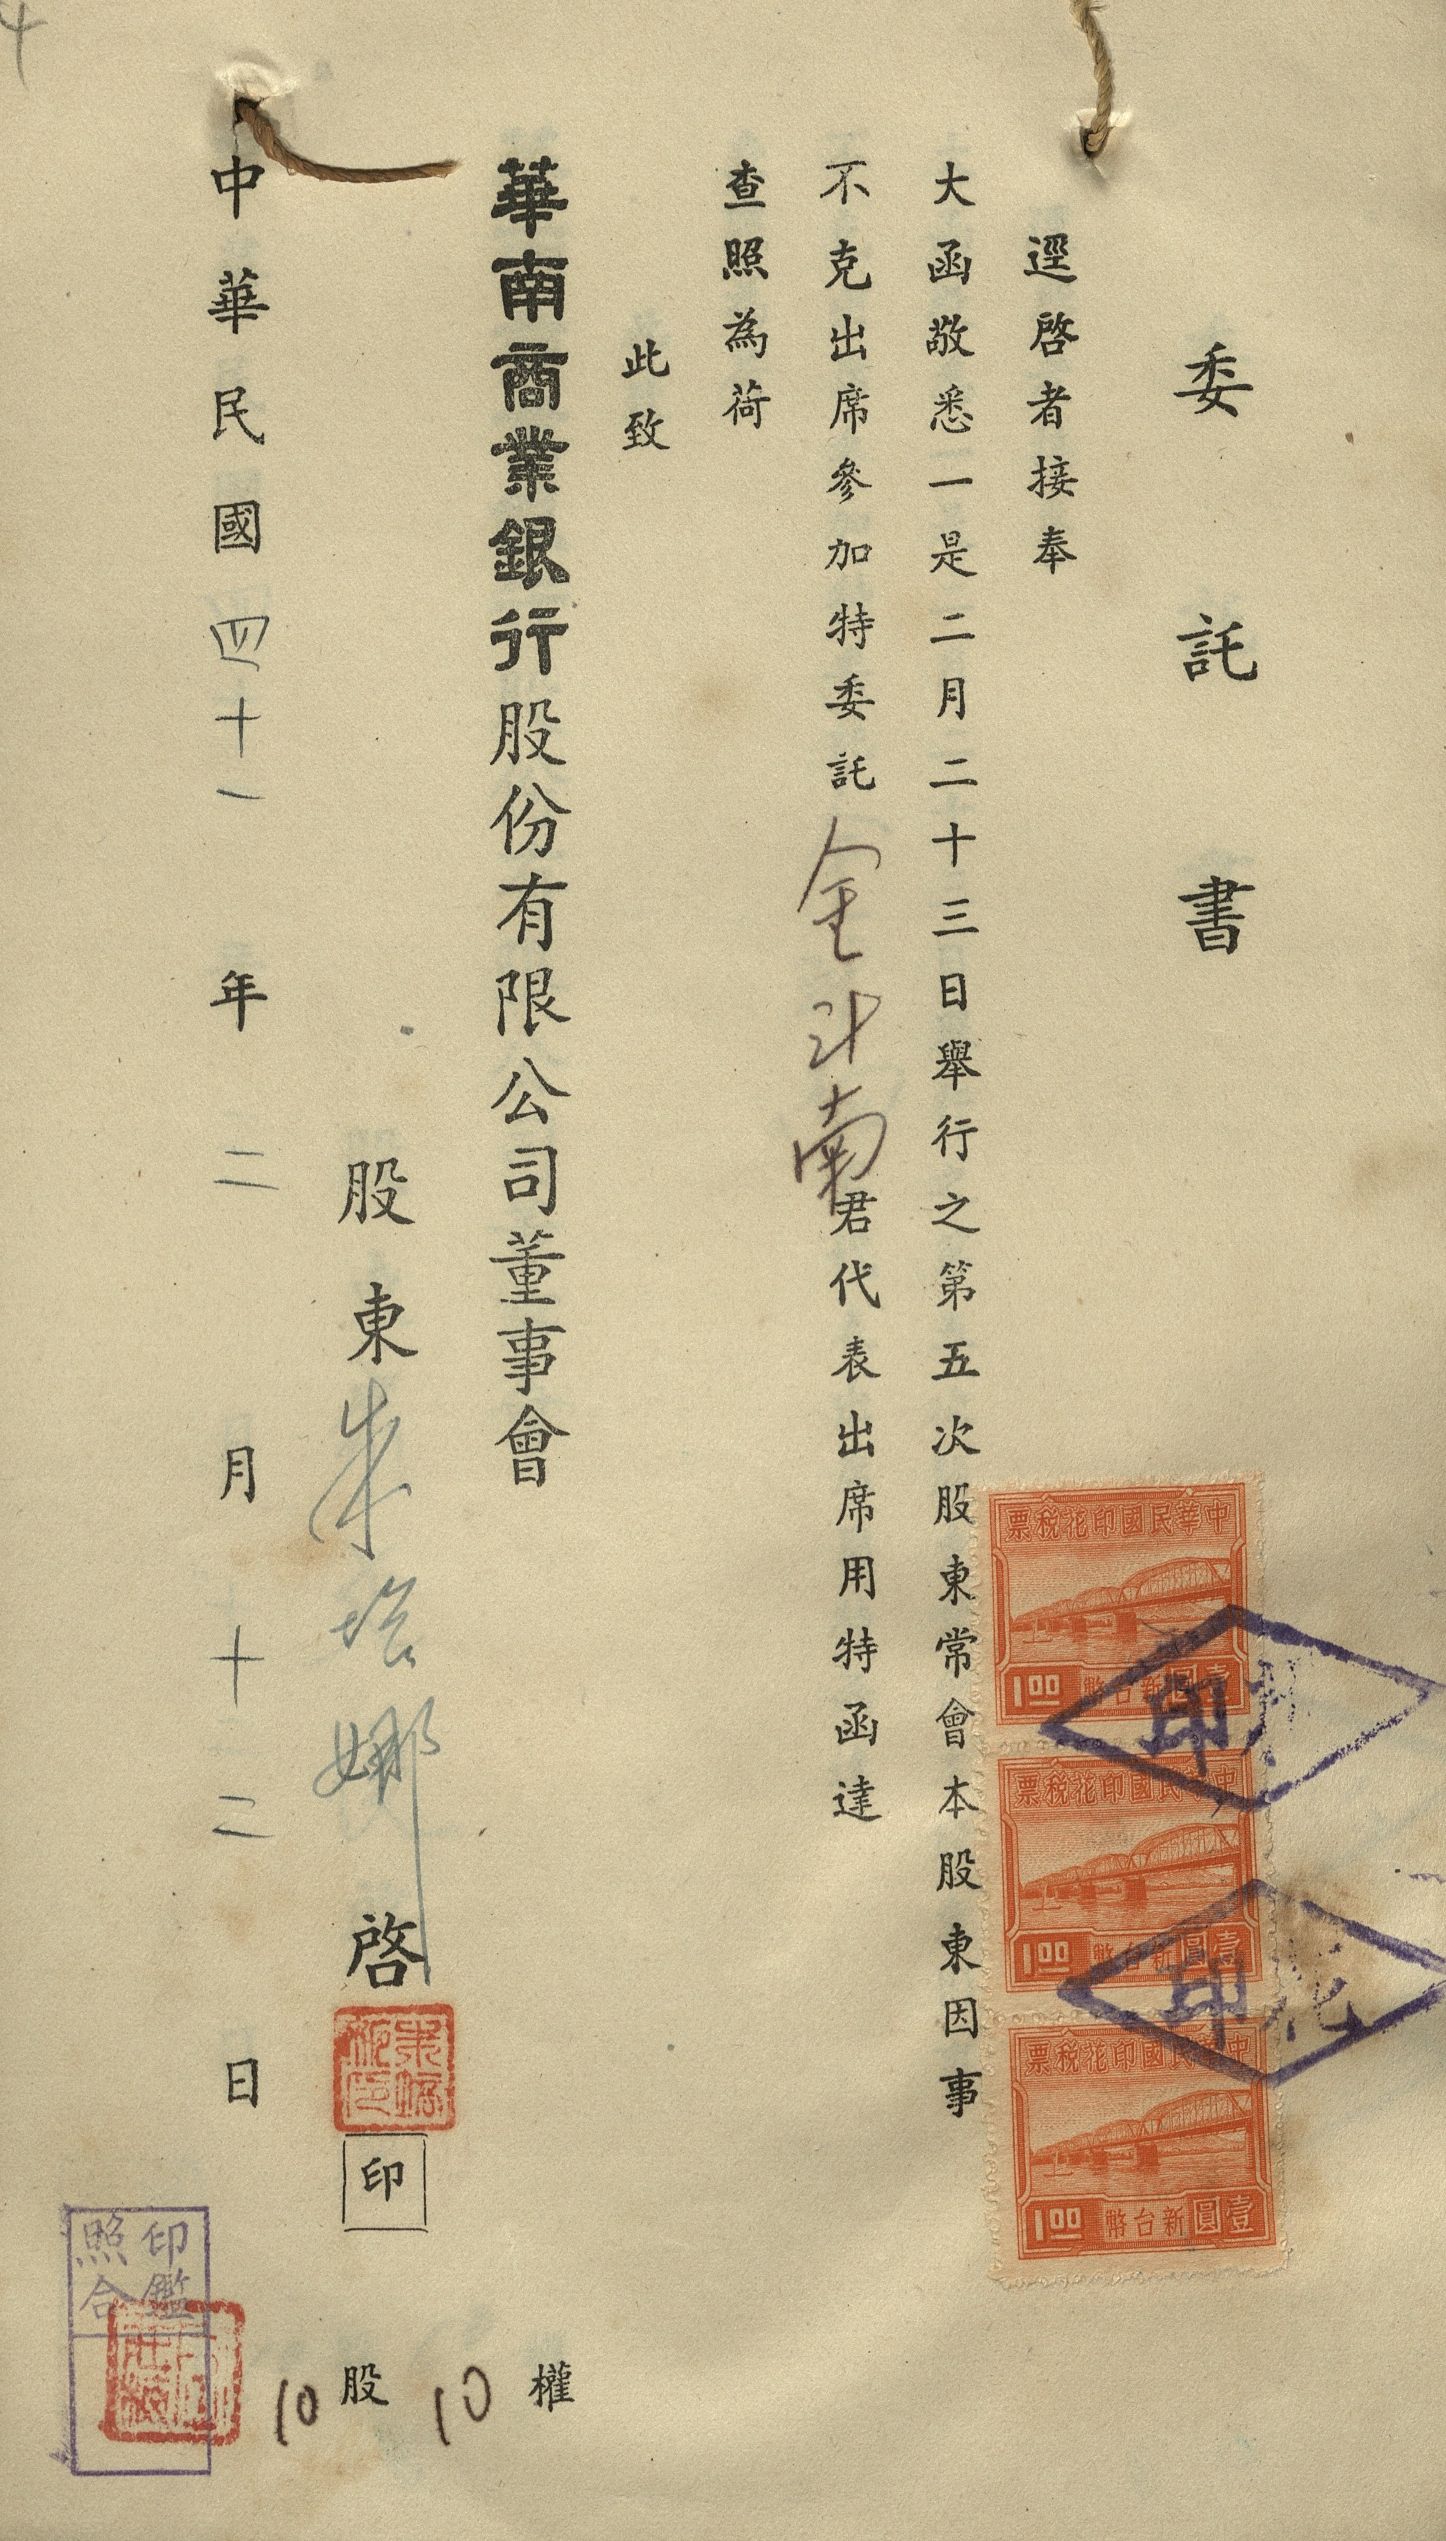 委託書
逕啓者接奉
大函敬悉一是二月二十三日舉行之第五次股東常會本股東因事
不克出席參加特委託金斗南君代表出席用特函達
查照為荷
此致
華南商業銀行股份有限公司董事會
股東朱培娜啓
印
中華民國四十一年二月十二日
權
10
股
10
中華民國印花稅票
1.00
新台幣壹圓
中華民國印花稅票
1.00
新台幣壹圓
中華民國印花稅票
1.00
新台幣壹圓
印
花印
印鑑
照合